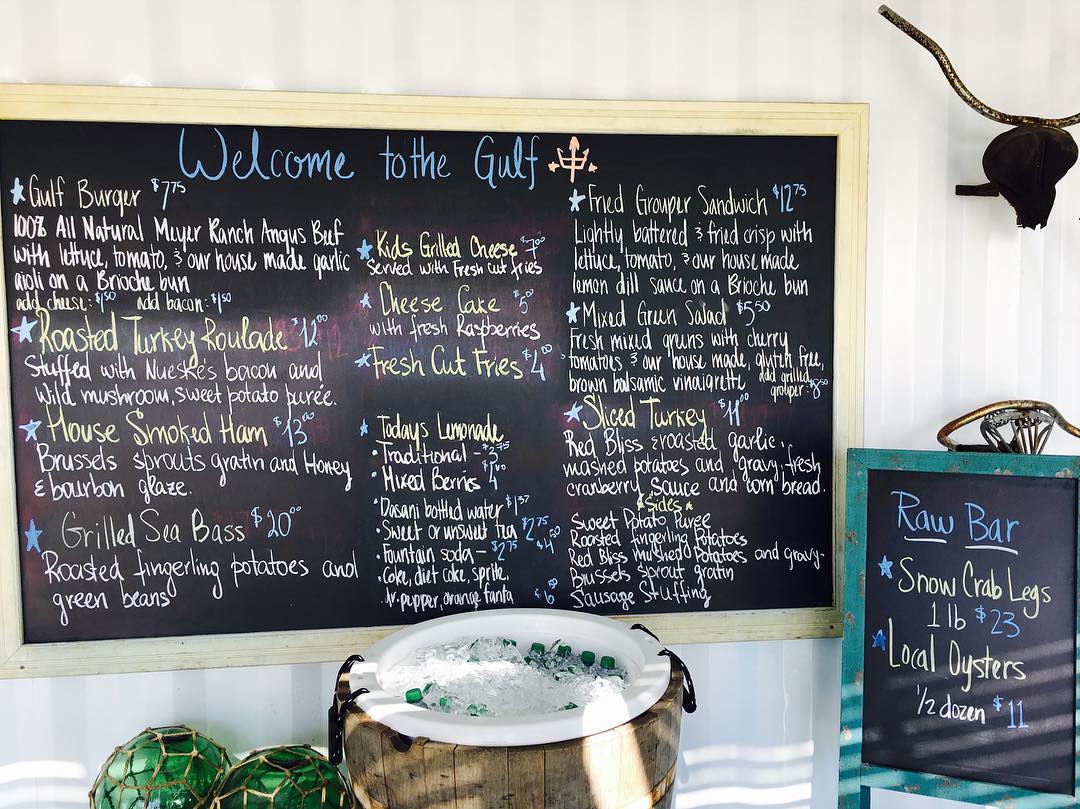 Welcome to the Gulf
Gulf Burger $7.75
100% All Natural Meyer Ranch Angus Beef
with lettuce, tomato, & our house made garlic
aioli on a Brioche bun
add cheese: $1.50 add bacon: $1.50
Roasted Turkey Roulade $12.00
Stuffed with Nueske's bacon and
wild mushroom, sweet potato purée.
House Smoked Ham $13.00
Brussels sprouts gratin and Honey
& bourbon glaze.
Grilled Sea Bass $20.00
Roasted fingerling potatoes and
green beans
Kids Grilled Cheese $7.00
Served with Fresh cut fries
Cheese Cake $5.00
with fresh Raspberries
Fresh Cut Fries $4.00
Todays Lemonade
Traditional -
Mixed Berries
Dasani bottled water $1.37
Sweet or unsweet tea $2.75
Fountain soda - $2.75
coke, diet coke, sprite,
dr. pepper, orange fanta
Fried Grouper Sandwich $12.75
Lightly battered & fried crisp with
lettuce, tomato, & our house made
lemon dill sauce on a Brioche bun
Mixed Green Salad $5.50
Fresh mixed greens with cherry
tomatoes & our house made, gluten free,
brown balsamic vinaigrette add grilled
grouper:
Sliced Turkey $11.00
Red Bliss & roasted garlic
mashed potatoes and gravy, fresh
cranberry sauce and corn bread.
Sides
Sweet Potato Puree
Roasted fingerling Potatoes
Red Bliss mushed Potatoes and gravy
Brussels sprout gratin
Sausage Stuffing
Raw Bar
Snow Crab Legs
1 lb $23
Local Oysters
1/2 dozen $11